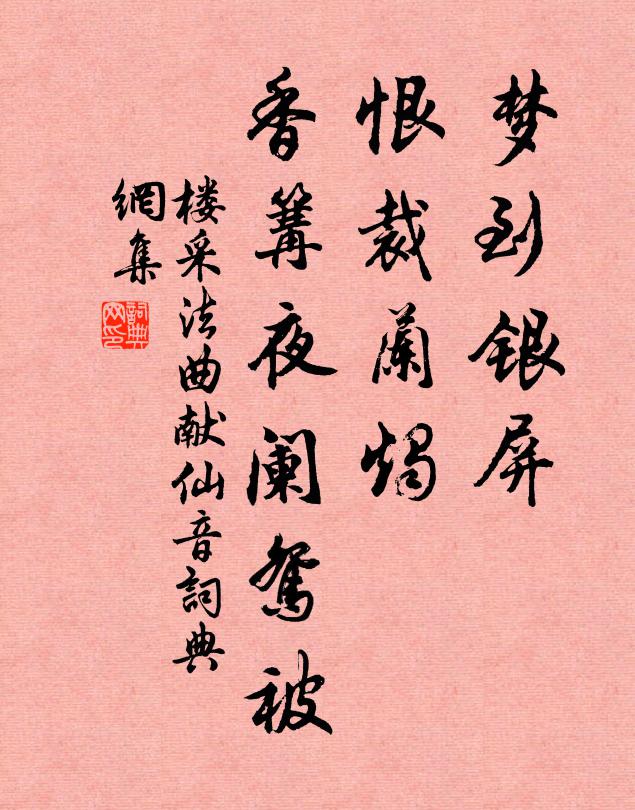 梦到银屏
恨裁蘭烛
香篝夜阑鸳被
楼采法曲献仙音詞典
網集
詞典
网印